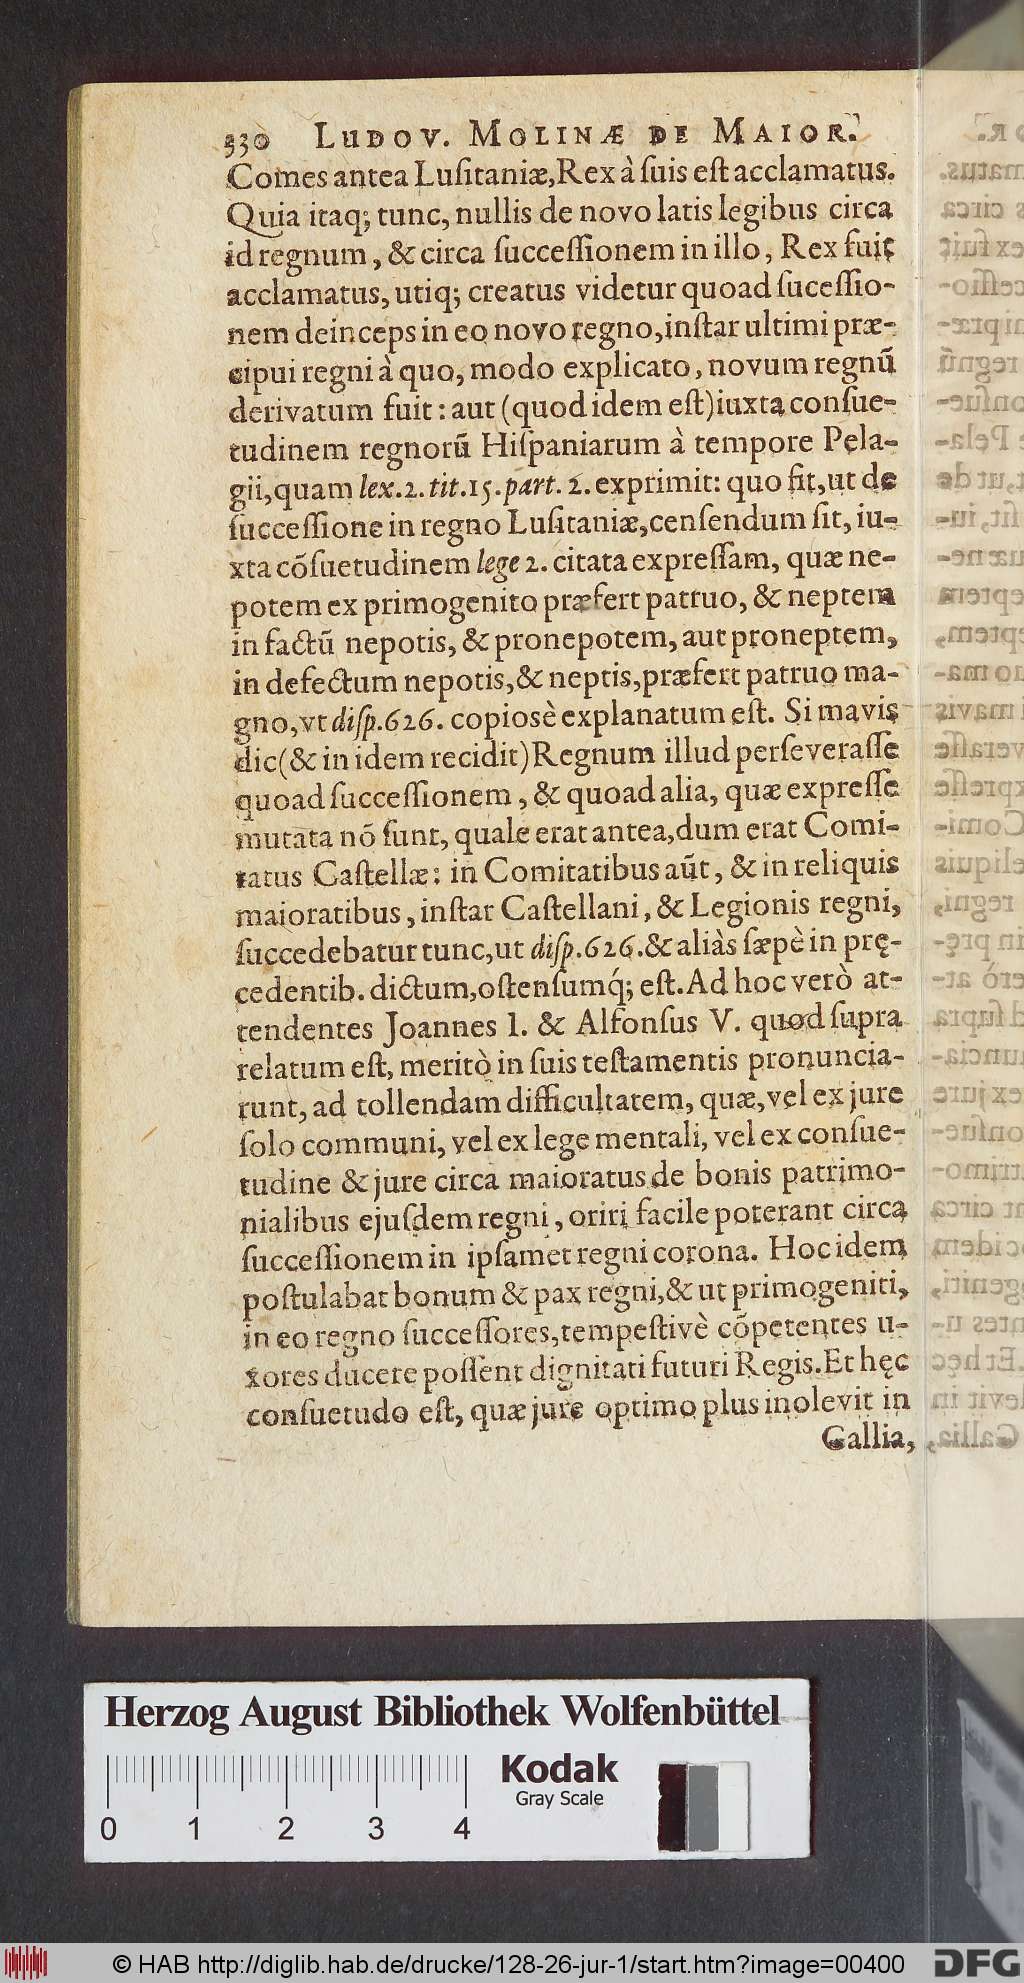 330 LUDOV. MOLINÆ DE MAIOR.
Comes antea Luſitaniæ, Rex à ſuis eſt acclamatus.
Quia itaq; tunc, nullis de novo latis legibus circa
id regnum, & circa ſucceſſionem in illo, Rex fuit
acclamatus, utiq; creatus videtur quoad ſuceſſio-
nem deinceps in eo novo regno, inſtar ultimi præ-
cipui regni à quo, modo explicato, novum regnū
derivatum fuit: aut (quod idem eſt) iuxta conſue-
tudinem regnorū Hiſpaniarum à tempore Pela-
gii, quam lex. 2. tit. 15. part. 2. exprimit: quo fit, ut de
ſucceſſione in regno Luſitaniæ, cenſendum ſit, iu-
xta cōſuetudinem lege 2. citata expreſſam, quæ ne-
potem ex primogenito præfert patruo, & neptem
in factū nepotis, & pronepotem, aut proneptem,
in defectum nepotis, & neptis, præfert patruo ma-
gno, vt diſp. 626. copiosè explanatum eſt. Si mavis
dic (& in idem recidit) Regnum illud perſeveraſſe
quoad ſucceſſionem, & quoad alia, quæ expreſſe
mutata nō ſunt, quale erat antea, dum erat Comi-
tatus Caſtellæ: in Comitatibus aūt, & in reliquis
maioratibus, inſtar Caſtellani, & Legionis regni,
ſuccedebatur tunc, ut diſp. 626. & aliàs ſæpè in prę-
cedentib. dictum, oſtenſumq́; eſt. Ad hoc verò at-
tendentes Joannes I. & Alfonſus V. quod ſupra
relatum eſt, meritò in ſuis teſtamentis pronuncia-
runt, ad tollendam difficultatem, quæ, vel ex jure
ſolo communi, vel ex lege mentali, vel ex conſue-
tudine & jure circa maioratus de bonis patrimo-
nialibus ejuſdem regni, oriri facile poterant circa
ſucceſſionem in ipſamet regni corona. Hoc idem
poſtulabat bonum & pax regni, & ut primogeniti,
in eo regno ſucceſſores, tempeſtivè cōpetentes u-
xores ducere poſſent dignitati futuri Regis. Et hęc
conſuetudo eſt, quæ jure optimo plus inolevit in
Gallia,
Herzog August Bibliothek Wolfenbüttel
Kodak
Gray Scale
0 1 2 3 4
© HAB http://diglib.hab.de/drucke/128-26-jur-1/start.htm?image=00400
DFG